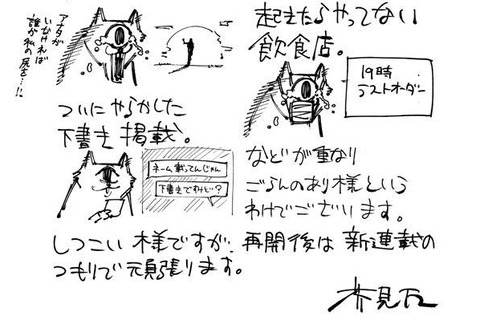 起きたらやってない
飲食店。
19時
ラストオーダー
アナタが
いなければ
誰が私の尻を…!!
ついにやらかした
下書き掲載。
ネーム載ってんじゃん
下書きですけど?
などが重なり
ごらんのあり様という
わけでございます。
しつこい様ですが、再開後は新連載の
つもりで頑張ります。
芥見下々